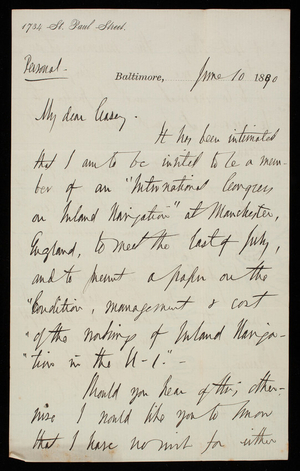 1734 St. Paul Street.
Personal.
Baltimore, June 10 1890
My dear Casey.
It has been intimated
that I am to be invited to be a mem-
ber of an "International Congress
on Inland Navigation" at Manchester,
England, to meet the last of July,
and to present a paper on the
"Condition, management & cost
"of the working of Inland Naviga-
"tion in the U-S." -
Should you hear of this, other-
wise I would like you to know
that I have no wish for either